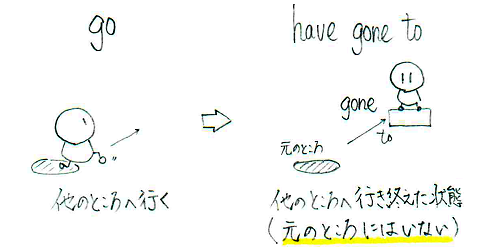 go
have gone to
gone
元のところ
to
他のところへ行く
他のところへ行き終えた状態
(元のところにはいない)